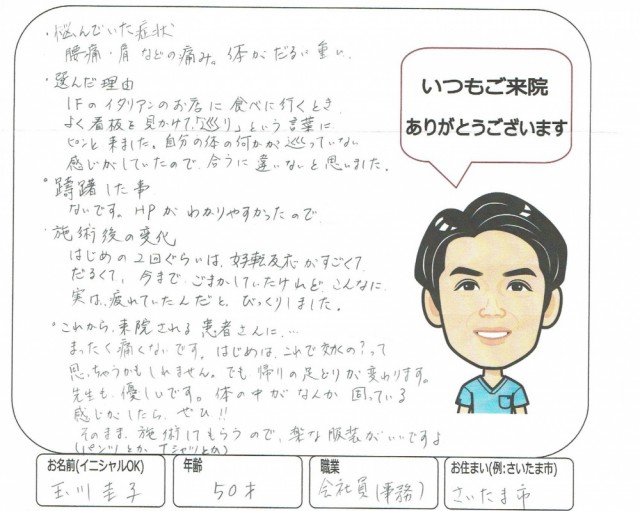 ・悩んでいた症状
腰痛・肩などの痛み。体がだるい重い。
・選んだ理由
1Fのイタリアンのお店に食べに行くとき、
よく看板を見かけて、「巡り」という言葉に
ピンと来ました。自分の体の何かが巡っていない
感じがしていたので、合うに違いないと思いました。
・躊躇した事
ないです。HPがわかりやすかったので、
・施術後の変化
はじめの2回ぐらいは、好転反応がすごくて、
だるくて、今まで、ごまかしていたけれど、こんなに、
実は、疲れていたんだと、びっくりしました。
・これから、来院される患者さんに、…
まったく痛くないです。はじめは、これで効くの?って
思っちゃうかもしれません。でも帰りの足どりが変わります。
先生も、優しいです。体の中がなんか固っている
感じがしたら、ぜひ!!
そのまま、施術してもらうので、楽な服装がいいですよ
(パンツとか、Tシャツとか)
いつもご来院
ありがとうございます
お名前(イニシャルOK)
玉川圭子
年齢
50才
職業
会社員(事務)
お住まい(例:さいたま市)
さいたま市